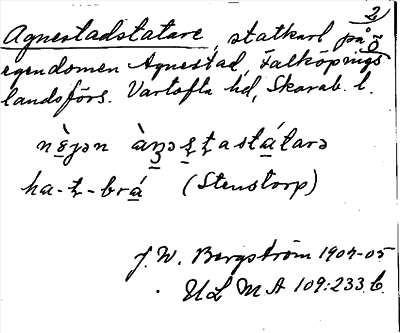 2
Agnestadstatare, statkarl på
egendomen Agnestad, Falköpings ö
landsförs. Vartofta hd, Skarab. l.
nè̱jən àŋə̱ʂʈastá̱tarə
ha-ʈ-brá̱ (Stenstorp)
J. W. Bergström 1904-05
ULMA 109:233 b.